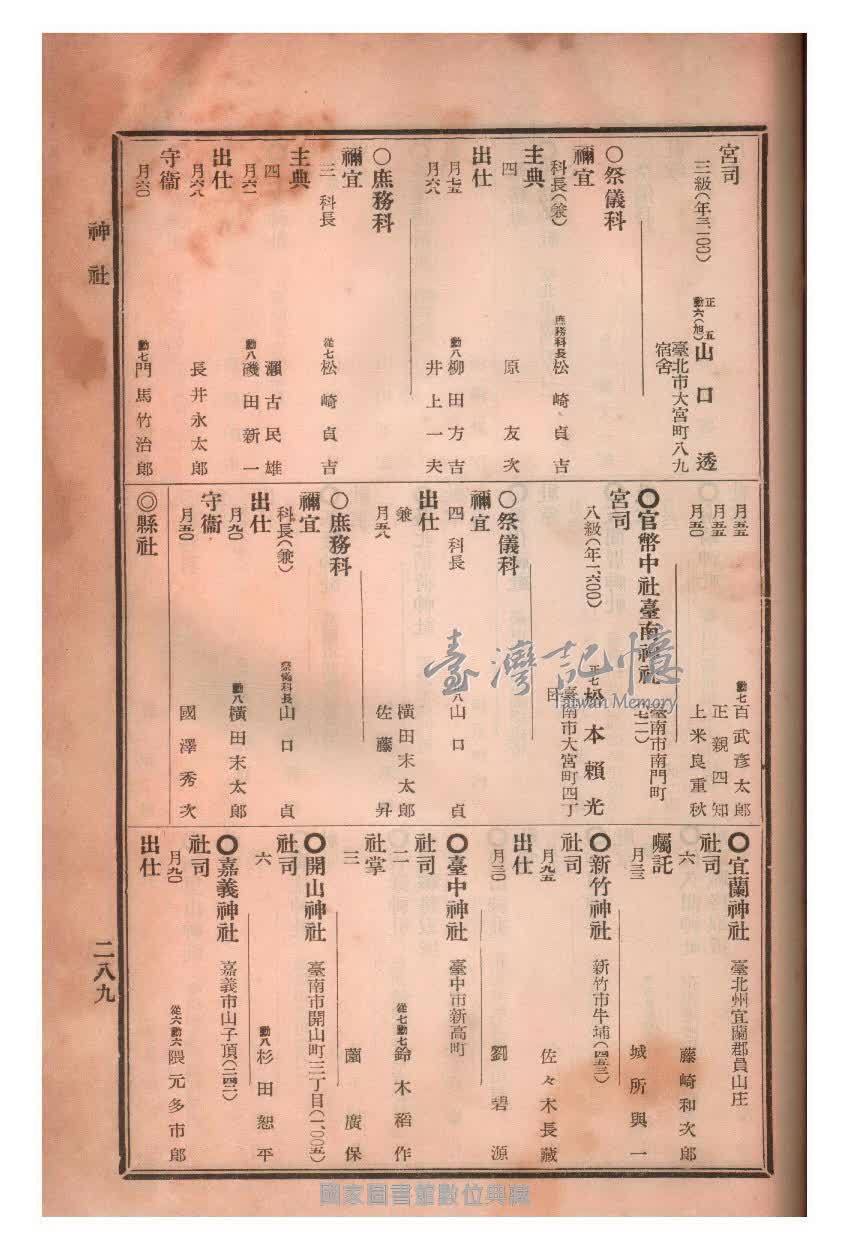 宮司
三級(年三、一〇〇)
正五
勳六(旭)
山口透
臺北市大宮町八九
宿舍
〇祭儀科
禰宜
科長(兼)
庶務科長 松崎貞吉
主典
四 原友次
出仕
月七五 勳八 柳田方吉
月六八 井上一夫
〇庶務科
禰宜
三 科長 從七 松崎貞吉
主典
四 瀨古民雄
月六一 勳八 磯田新一
出仕
月六八 長井永太郎
守衞
月六〇 勳七 門馬竹治郎
月五五 勳七 百武彥太郎
月五五 正親四知
月五〇 上米良重秋
〇官幣中社臺南神社
臺南市南門町
宮司
八級(年一、六〇〇)
正七 松本賴光
臺南市大宮町四丁
〇祭儀科
禰宜
四 科長 山口貞
出仕
兼 橫田末太郎
月五八 佐藤昇
〇庶務科
禰宜
科長(兼) 祭儀科長 山口貞
出仕
月九〇 勳八 橫田末太郎
守衞
月五〇 國澤秀次
◎縣社
〇宜蘭神社 臺北州宜蘭郡員山庄
社司
六 藤崎和次郎
囑託
月三三 城所與一
〇新竹神社 新竹市牛埔(四五三)
社司
月九五 佐々木長藏
出仕
月三〇 劉碧源
〇臺中神社 臺中市新高町
社司
二 從七勳七 鈴木稻作
社掌
三 薗廣保
〇開山神社 臺南市開山町三丁目(一、〇〇五)
社司
六 勳八 杉田恕平
〇嘉義神社 嘉義市山子頂(二四二)
社司
月九〇 從六勳六 隈元多市郎
出仕
神社
二八九
臺灣記憶
Taiwan Memory
國家圖書館數位典藏